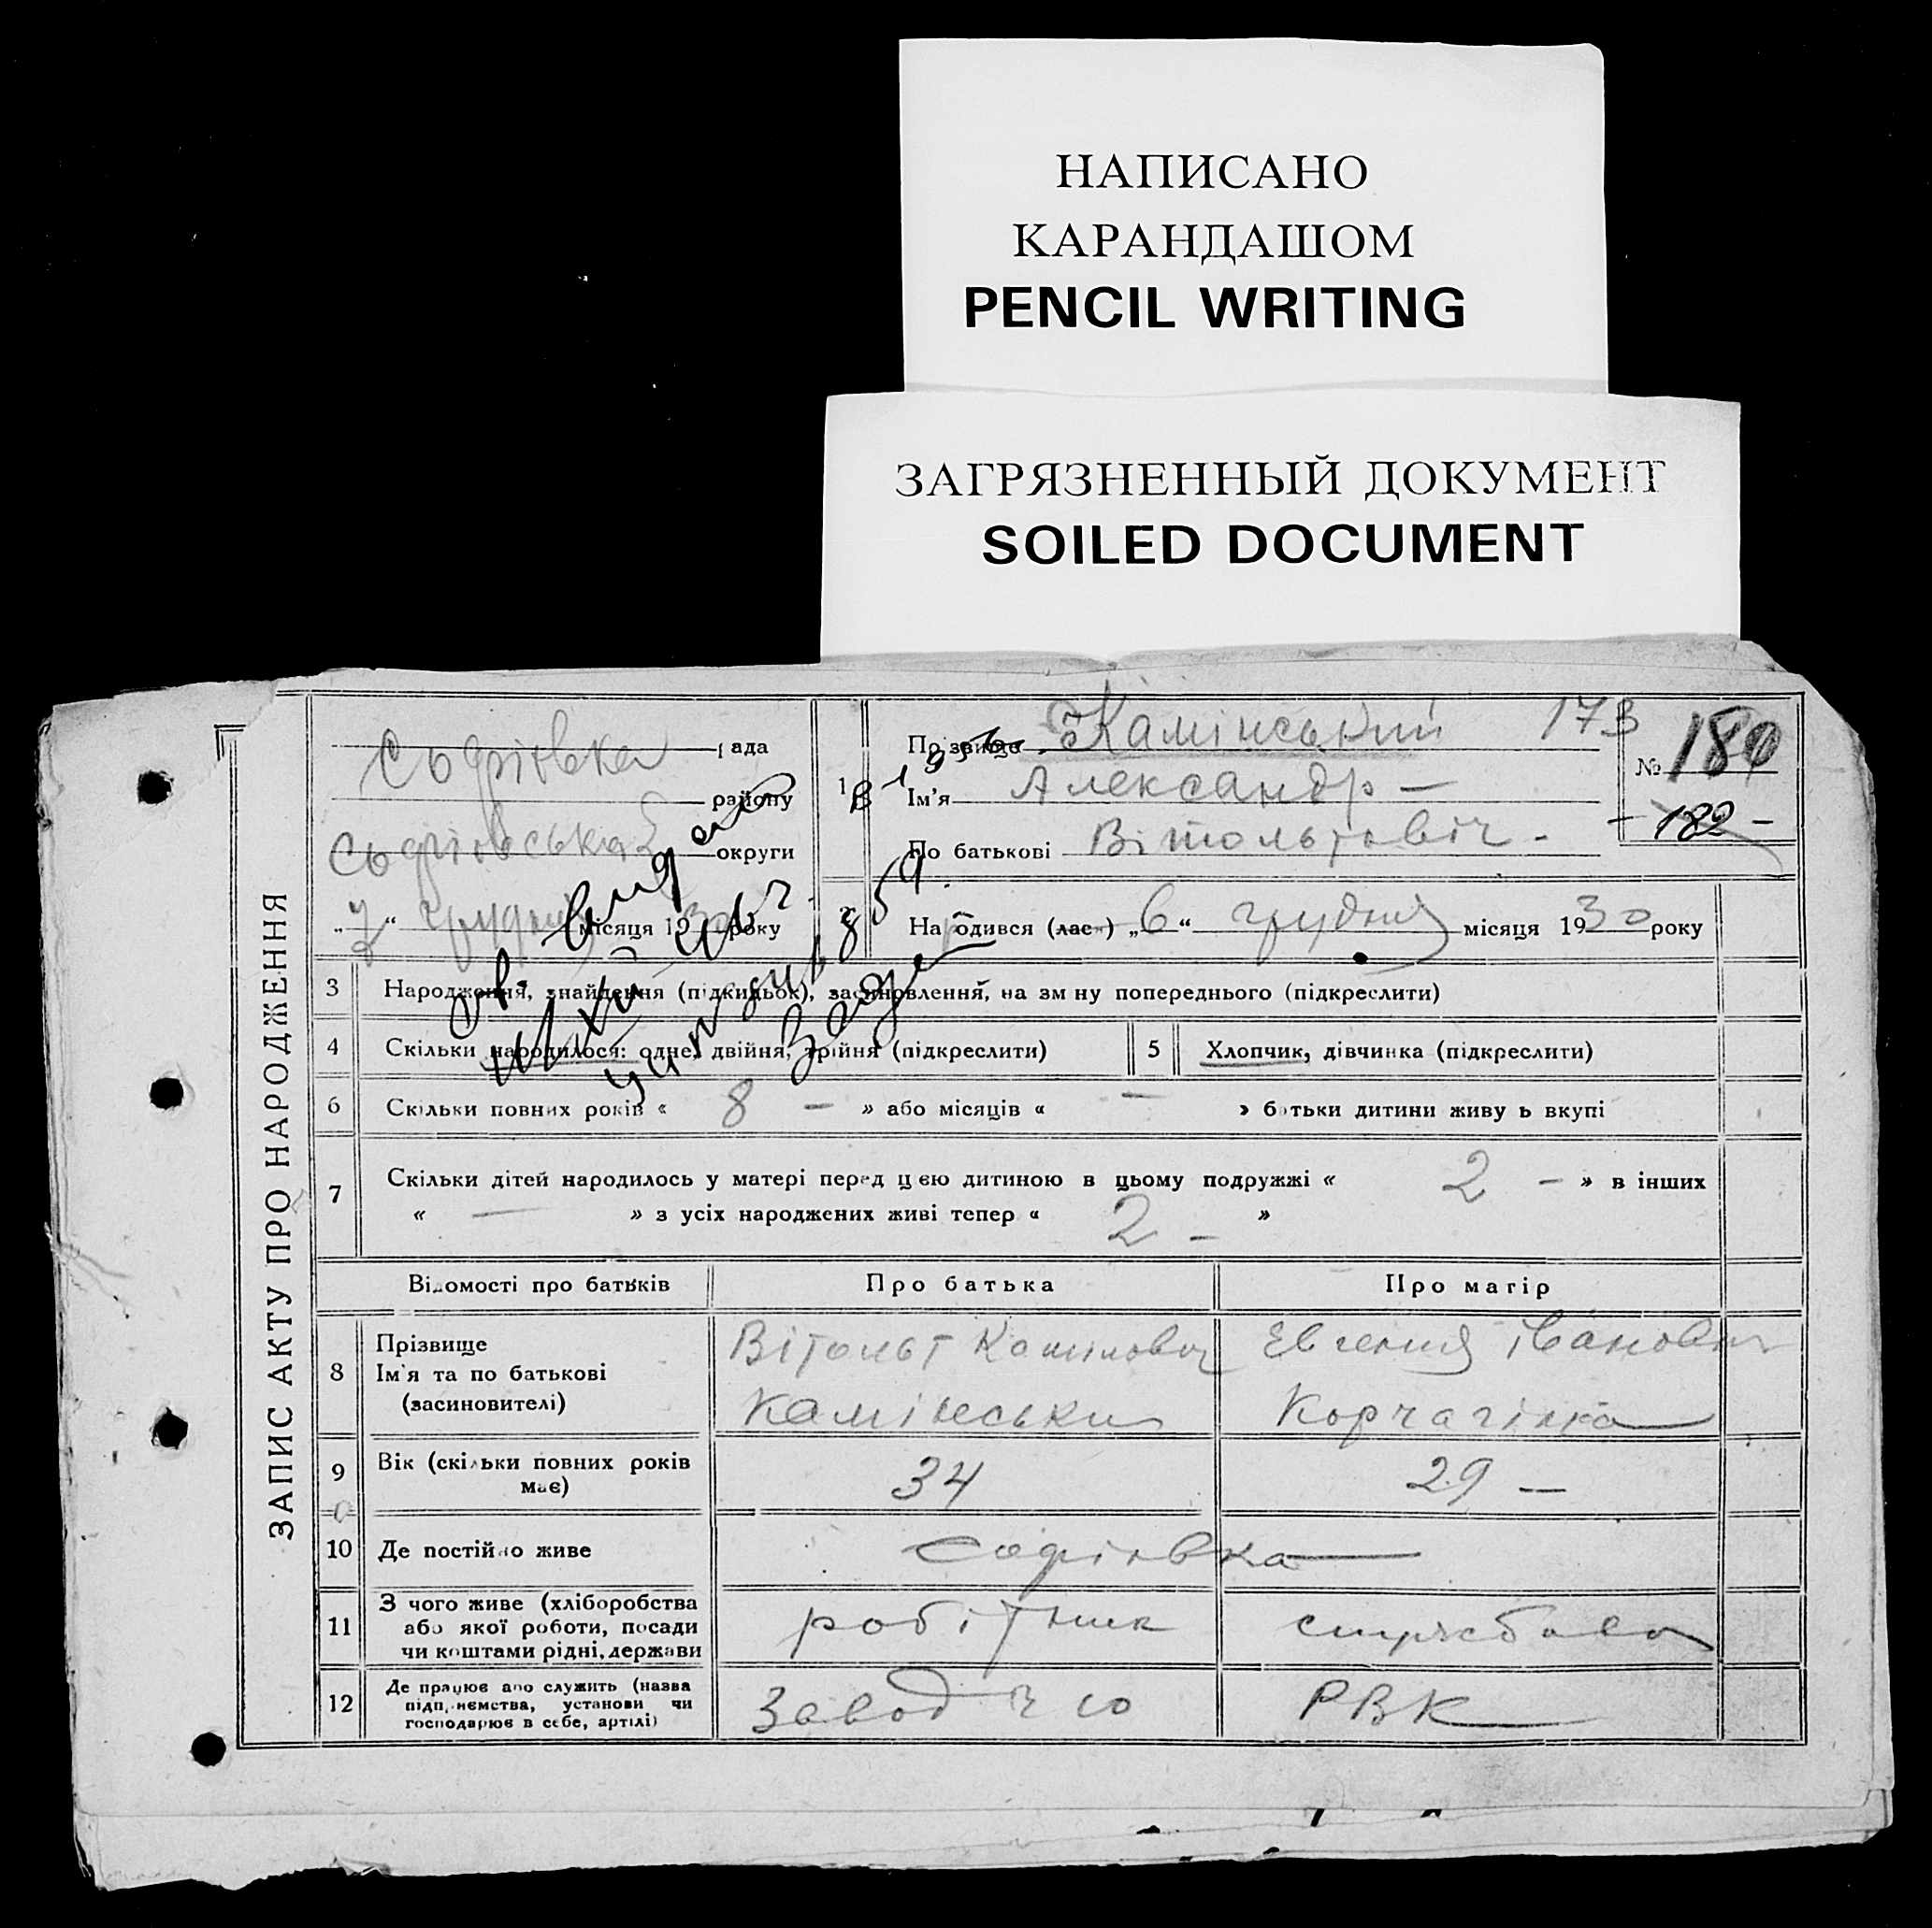 НАПИСАНО
КАРАНДАШОМ
PENCIL WRITING
ЗАГРЯЗНЕННЫЙ ДОКУМЕНТ
SOILED DOCUMENT
ЗАПИС АКТУ ПРО НАРОДЖЕННЯ
Софіювка рада
району
округи
грудня місяця 1930 року
1 Прізвище Камінський 173
Ім'я Александр —
По батькові Вітольтовіч -
№ 180
- 182 -
2 Народився (лась) „6“ грудня місяця 1930 року
3 Народження, знайдення (підкидьок), засиновлення, на зміну попереднього (підкреслити)
4 Скільки народилося: одне, двійня, трійня (підкреслити)
5 Хлопчик, дівчинка (підкреслити)
6 Скільки повних років « 8 — » або місяців « — » батьки дитини живуть вкупі
7 Скільки дітей народилось у матері перед цією дитиною в цьому подружжі « 2 — » в інших
« — » з усіх народжених живі тепер « 2 — »
Відомості про батьків Про батька Про матір
8 Прізвище
Ім'я та по батькові
(засиновителі)
Вітольт
Камінськи
Евгения Івановн
Корчагіна
9 Вік (скільки повних років
має)
34 29 —
10 Де постійно живе Софіювка
11 З чого живе (хліборобства
або якої роботи, посади
чи коштами рідні, держави
робітник службова
12 Де працює або служить (назва
підприємства, установи чи
господарює в себе, артілі)
Завод РВК